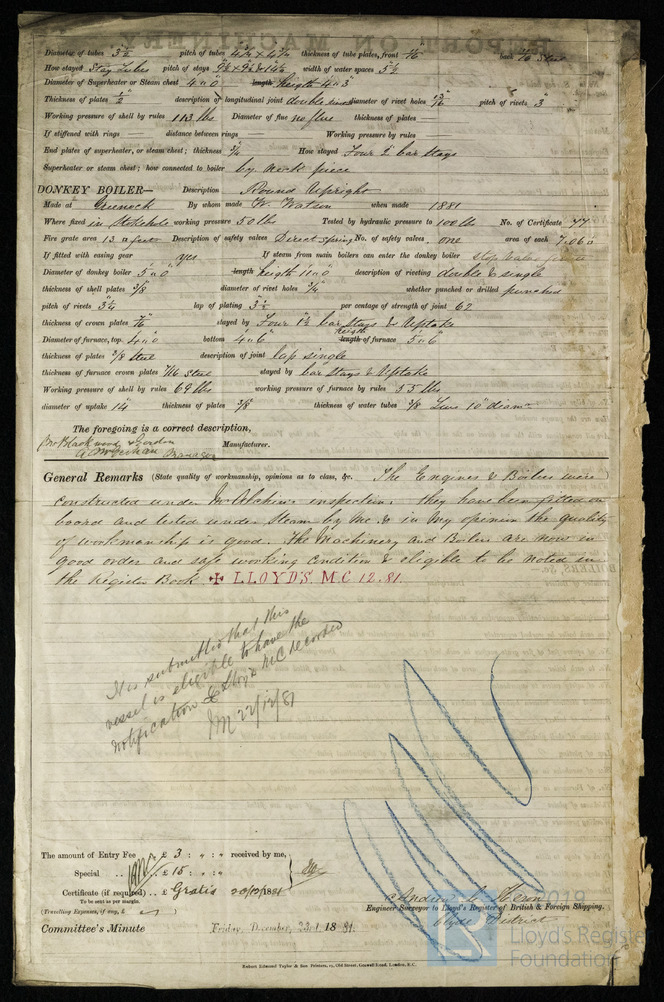 Diameter of tubes 3½ pitch of tubes 4¾ x 4¾ thickness of tube plates, front back Steel
How stayed Stay Tubes pitch of stays width of water spaces 5½
Diameter of Superheater or Steam chest 4' 0" length heigth 4' 0 3
Thickness of plates ½" description of longitudinal joint double diameter of rivet holes pitch of rivets 3"
Working pressure of shell by rules 113 lbs Diameter of flue no flue thickness of plates —
If stiffened with rings — distance between rings — Working pressure by rules
End plates of superheater, or steam chest; thickness ¾ How stayed Four 2" bar stays
Superheater or steam chest; how connected to boiler by neck piece
DONKEY BOILER— Description Round Upright
Made at Greenock By whom made W. Watson when made 1881
Where fixed in Stokehole working pressure 50 lbs Tested by hydraulic pressure to 100 lbs No. of Certificate 77
Fire grate area 13 □ feet Description of safety valves Direct spring No. of safety valves one area of each 7.06 □
If fitted with easing gear yes If steam from main boilers can enter the donkey boiler stop valve
Diameter of donkey boiler 5' 0" length heigth 11' 0 description of riveting double & single
thickness of shell plates 3/8 diameter of rivet holes ¾" whether punched or drilled punched
pitch of rivets 3¼ lap of plating 3½ per centage of strength of joint 62
thickness of crown plates 7/16 stayed by Four 1½ bar stays & Uptake
Diameter of furnace, top 4' 0 bottom 4' 6" length heigth of furnace 5' 6"
thickness of plates 3/8 Steel description of joint lap single
thickness of furnace crown plates 7/16 Steel stayed by bar stays & Uptake
Working pressure of shell by rules 69 lbs working pressure of furnace by rules 55 lbs
diameter of uptake 14 thickness of plates 3/8 thickness of water tubes 3/8 Two 10" diamr
The foregoing is a correct description,
Blackwood & Gordon
Manager Manufacturer.
General Remarks (State quality of workmanship, opinions as to class, &c. The Engines & Boilers were
constructed under Mr inspection, they have been fitted on
board and tested under Steam by me, & in my opinion the quality
of workmanship is good. The Machinery and Boilers are now in
good order and safe working condition & eligible to be noted in
the Register Book ✠ LLOYD'S. M.C 12.81.
It is submitted that this
vessel is eligible to have the
notification of Lloyd's MC recorded
JM 22/12/81
The amount of Entry Fee .. £ 3 : " : " received by me,
Special .. .. £ 15 : " : "
Certificate (if required) .. £ Gratis 20/12/1881
To be sent as per margin.
(Travelling Expenses, if any, £
Andrew Heron
Engineer Surveyor to Lloyd's Register of British & Foreign Shipping.
Clyde District
Committee's Minute Friday, December, 23rd 1881.
Robert Edmund Taylor & Son Printers, 19, Old Street, Goswell Road, London, E.C.
2019
Lloyd's Register
Foundation